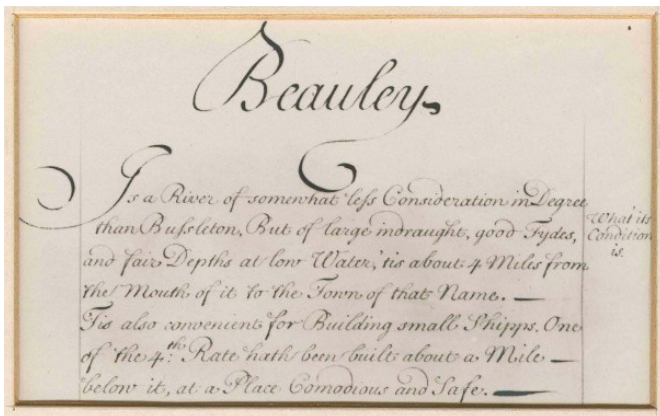 Beauley.
Is a River of somewhat less Consideration in Degree
than Bussleton, But of large indraught, good Tydes,
and fair Depths at low Water, tis about 4 Miles from
the Mouth of it to the Town of that Name. —
Tis also convenient for Building small Shipps. One
of the 4.th Rate hath been built about a Mile —
below it, at a Place Comodious and Safe. —
What its
Condition
is.